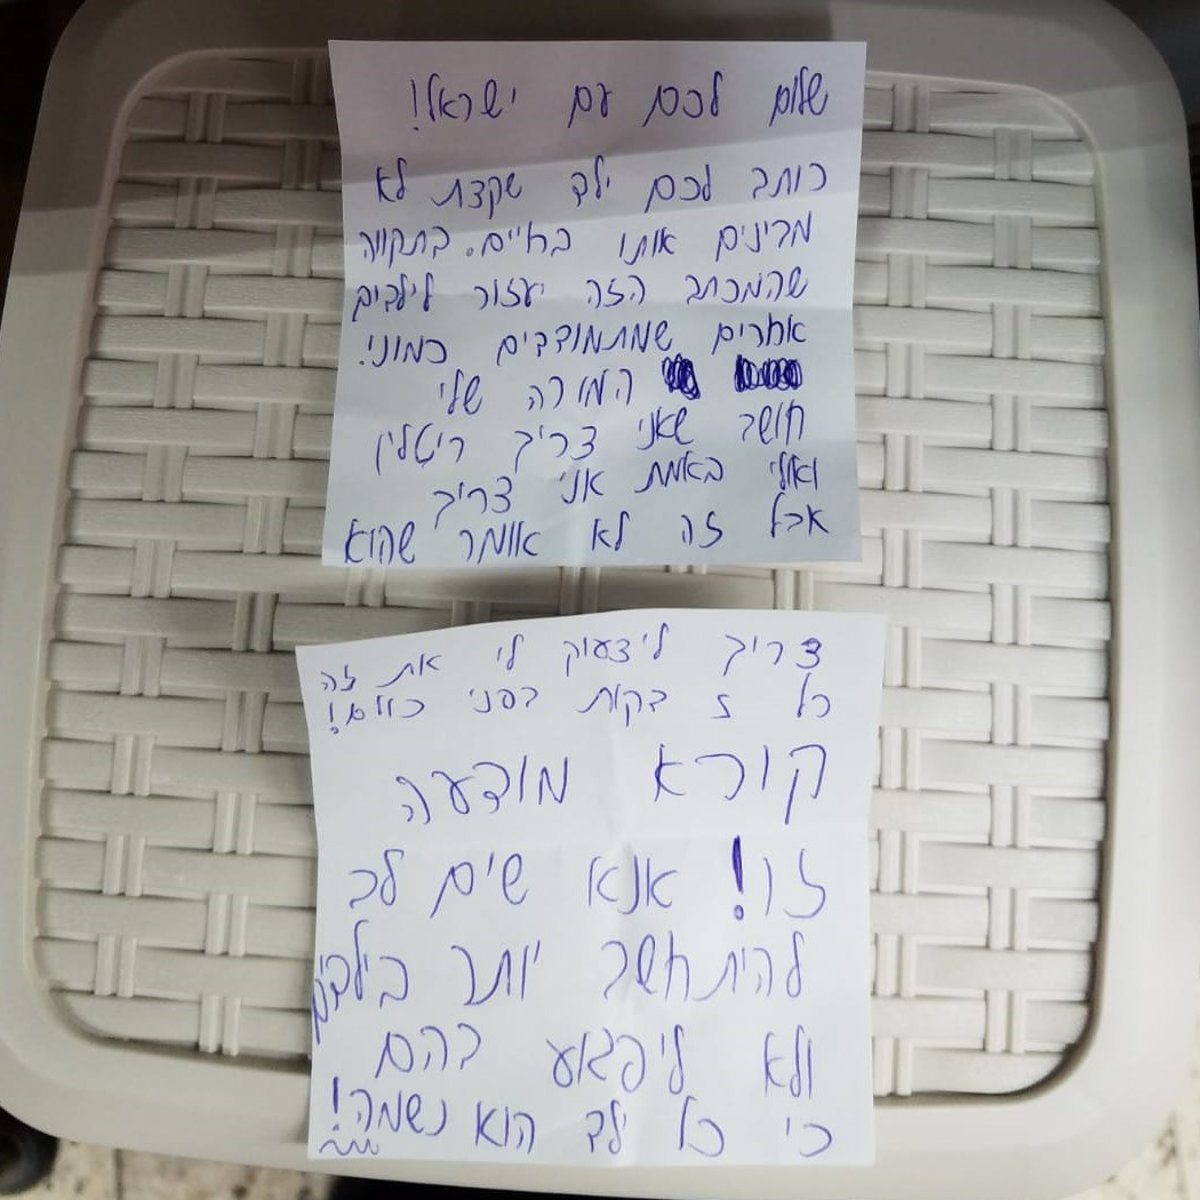 שלום לכם עם ישראל!
כותב לכם ילד שקצת לא
מבינים אותו בחיים. בתקווה
שהמכתב הזה יעזור לילדים
אחרים שמתמודדים כמוני.
המורה שלי
חושב שאני צריך ריטלין
ואולי באמת אני צריך
אבל זה לא אומר שהוא
צריך ליצעוק לי את זה
כל 2 דקות בפני כולם!
קורא מודעה
זו! אנא שים לב
להיתחשב יותר בילדים
ולא ליפגוע בהם
כי כל ילד הוא נשמה!